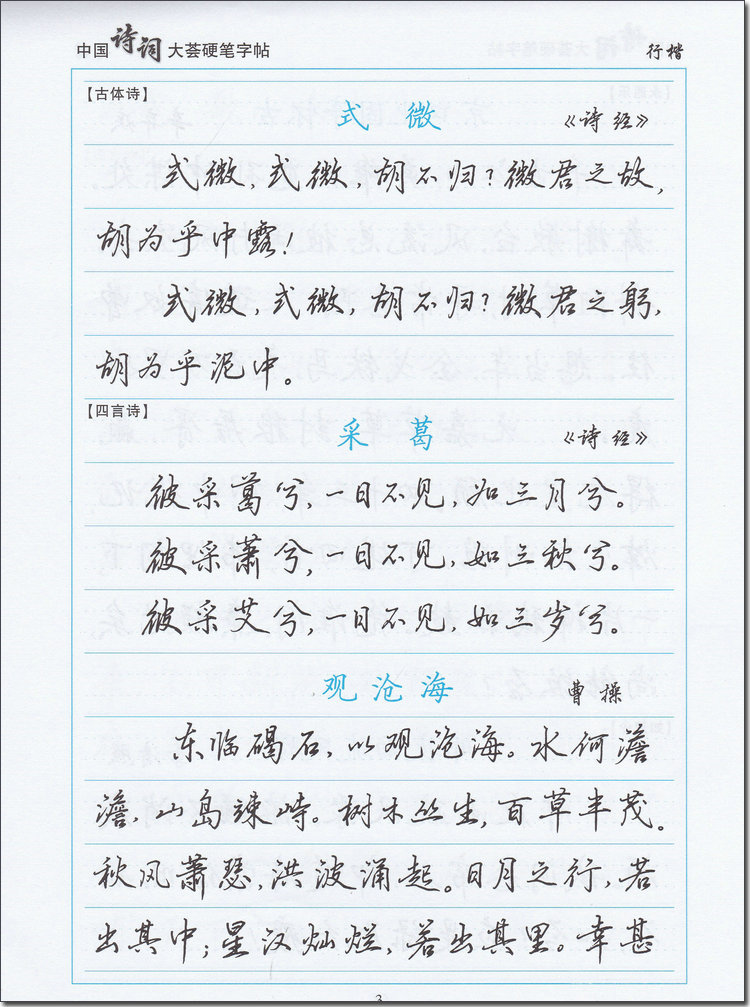 中国诗词大荟硬笔字帖 行楷
【古体诗】
式微 《诗经》
式微,式微,胡不归?微君之故,
胡为乎中露!
式微,式微,胡不归?微君之躬,
胡为乎泥中。
【四言诗】
采葛 《诗经》
彼采葛兮,一日不见,如三月兮。
彼采萧兮,一日不见,如三秋兮。
彼采艾兮,一日不见,如三岁兮。
观沧海 曹操
东临碣石,以观沧海。水何澹
澹,山岛竦峙。树木丛生,百草丰茂。
秋风萧瑟,洪波涌起。日月之行,若
出其中;星汉灿烂,若出其里。幸甚
3